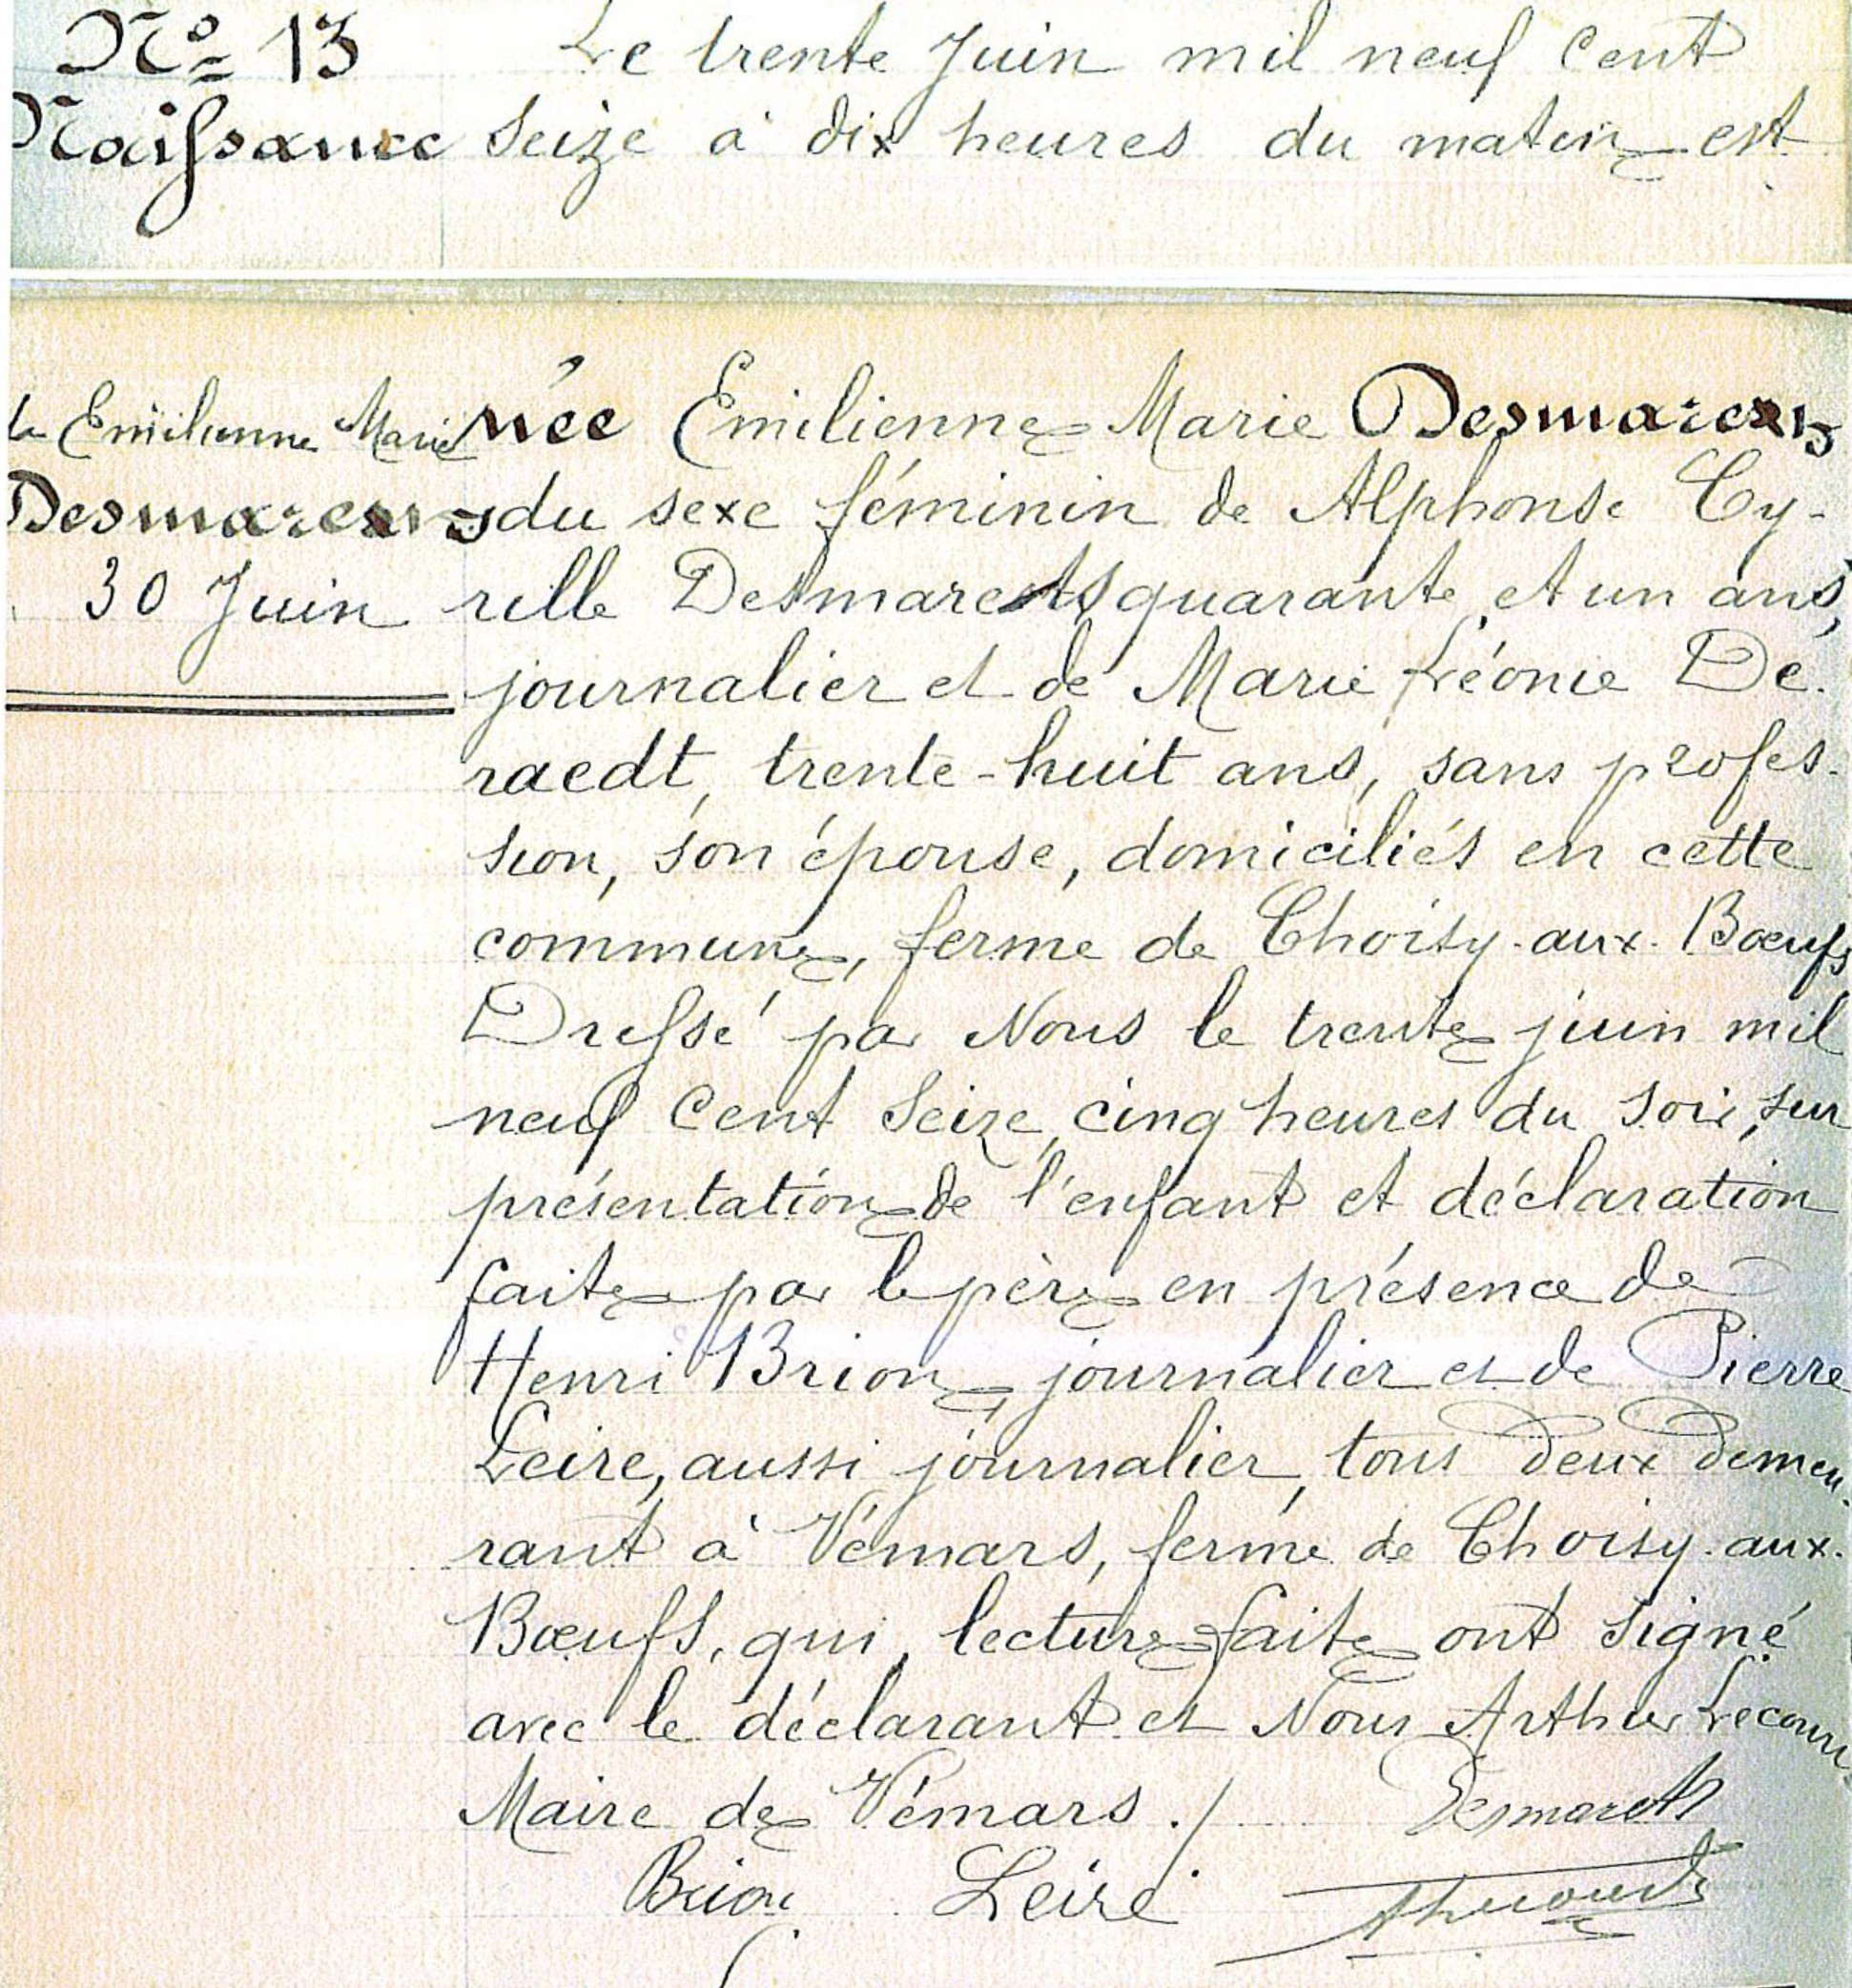 N° 13
Naissance
Le trente Juin mil neuf Cent
Seize à dix heures du matin est
de Emilienne Marie
Desmarets
30 Juin
née Emilienne Marie Desmarets
du sexe féminin de Alphonse Cy-
rille Desmarets quarante et un ans,
journalier et de Marie Léonie De-
raedt, trente-huit ans, sans profes-
sion, son épouse, domiciliés en cette
commune, ferme de Choisy-aux-Bœufs
Dressé par Nous le trente juin mil
neuf Cent Seize, cinq heures du soir, sur
présentation de l'enfant et déclaration
faite par le père en présence de
Henri Brion, journalier et de Pierre
Leire, aussi journalier, tous deux demeu-
rant à Vémars, ferme de Choisy-aux-
Bœufs, qui, lecture faite ont signé
avec le déclarant et Nous Arthur
Maire de Vémars ./. Desmarets
Brion Leire